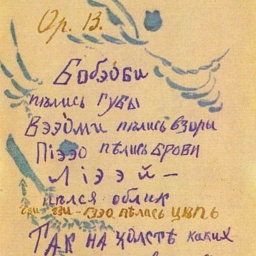 Ор. 13.
Бобэоби
пѣлись губы
Вээоми пѣлись взоры
Пiээо пѣлись брови
Лiэээй —
пѣлся облик
гзи-гзи-гзэо пѣлась цѣпь
Так на холстѣ каких